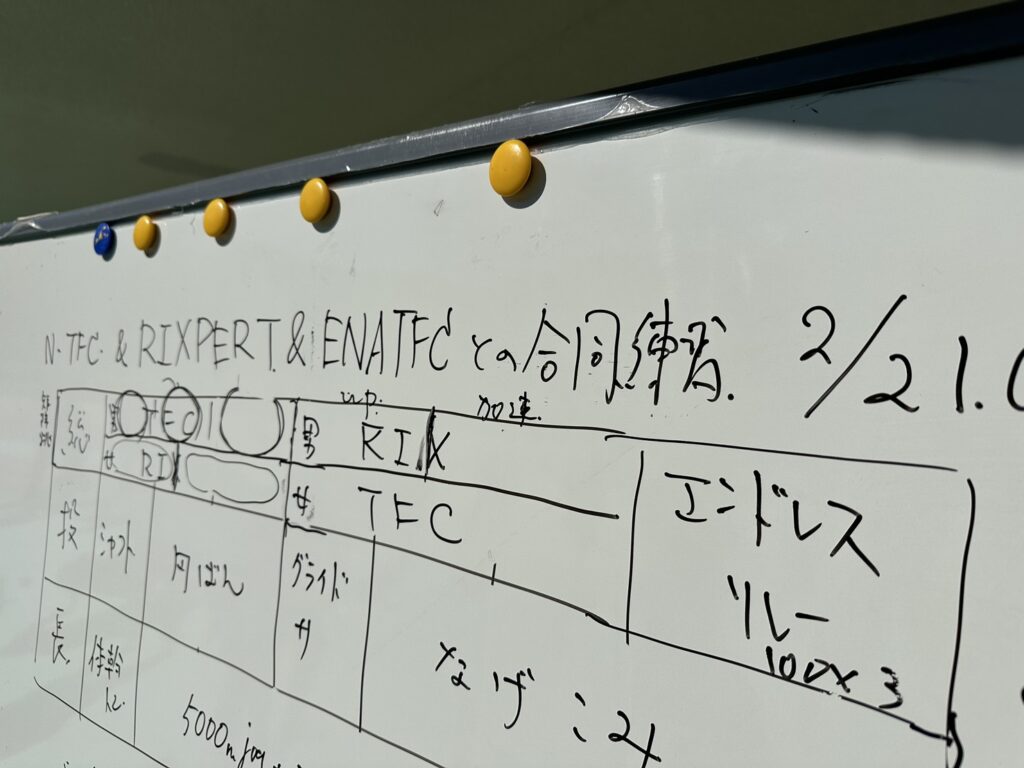 N.TFC & RIXPERT & ENATFC との合同練習. 2/21.
up. 加速.
総 男 TFC 男 RIX エンドレス
女 RIX 女 TFC リレー
100×3
投 シャフト 円ばん グライド
長 体幹 なげ
5000m jog